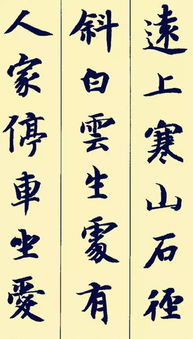 遠上寒山石徑
斜白雲生處有
人家停車坐愛